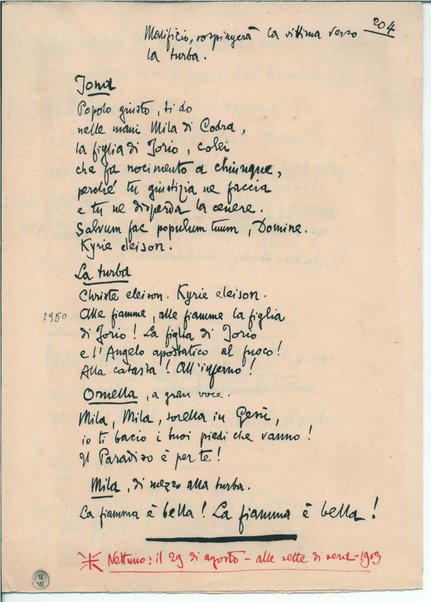 204
Malificio, sospingerà la vittima verso
la turba.
Jona
Popolo giusto, ti do
nelle mani Mila di Codra,
la figlia di Jorio, colei
che fa nocimento a chiunque,
perché tu giustizia ne faccia
e tu ne disperda la cenere.
Salvum fac populum tuum, Domine.
Kyrie eleison.
La turba
Christe eleison. Kyrie eleison.
2950 Alle fiamme, alle fiamme la figlia
di Jorio! La figlia di Jorio
e l'Angelo apostatico al fuoco!
Alla catasta! All'inferno!
Ornella, a gran voce.
Mila, Mila, sorella in Gesù,
io ti bacio i tuoi piedi che vanno!
Il Paradiso è per te!
Mila, di mezzo alla turba.
La fiamma è bella! La fiamma è bella!
Nettuno: il 29 di agosto - alle sette di sera - 1903